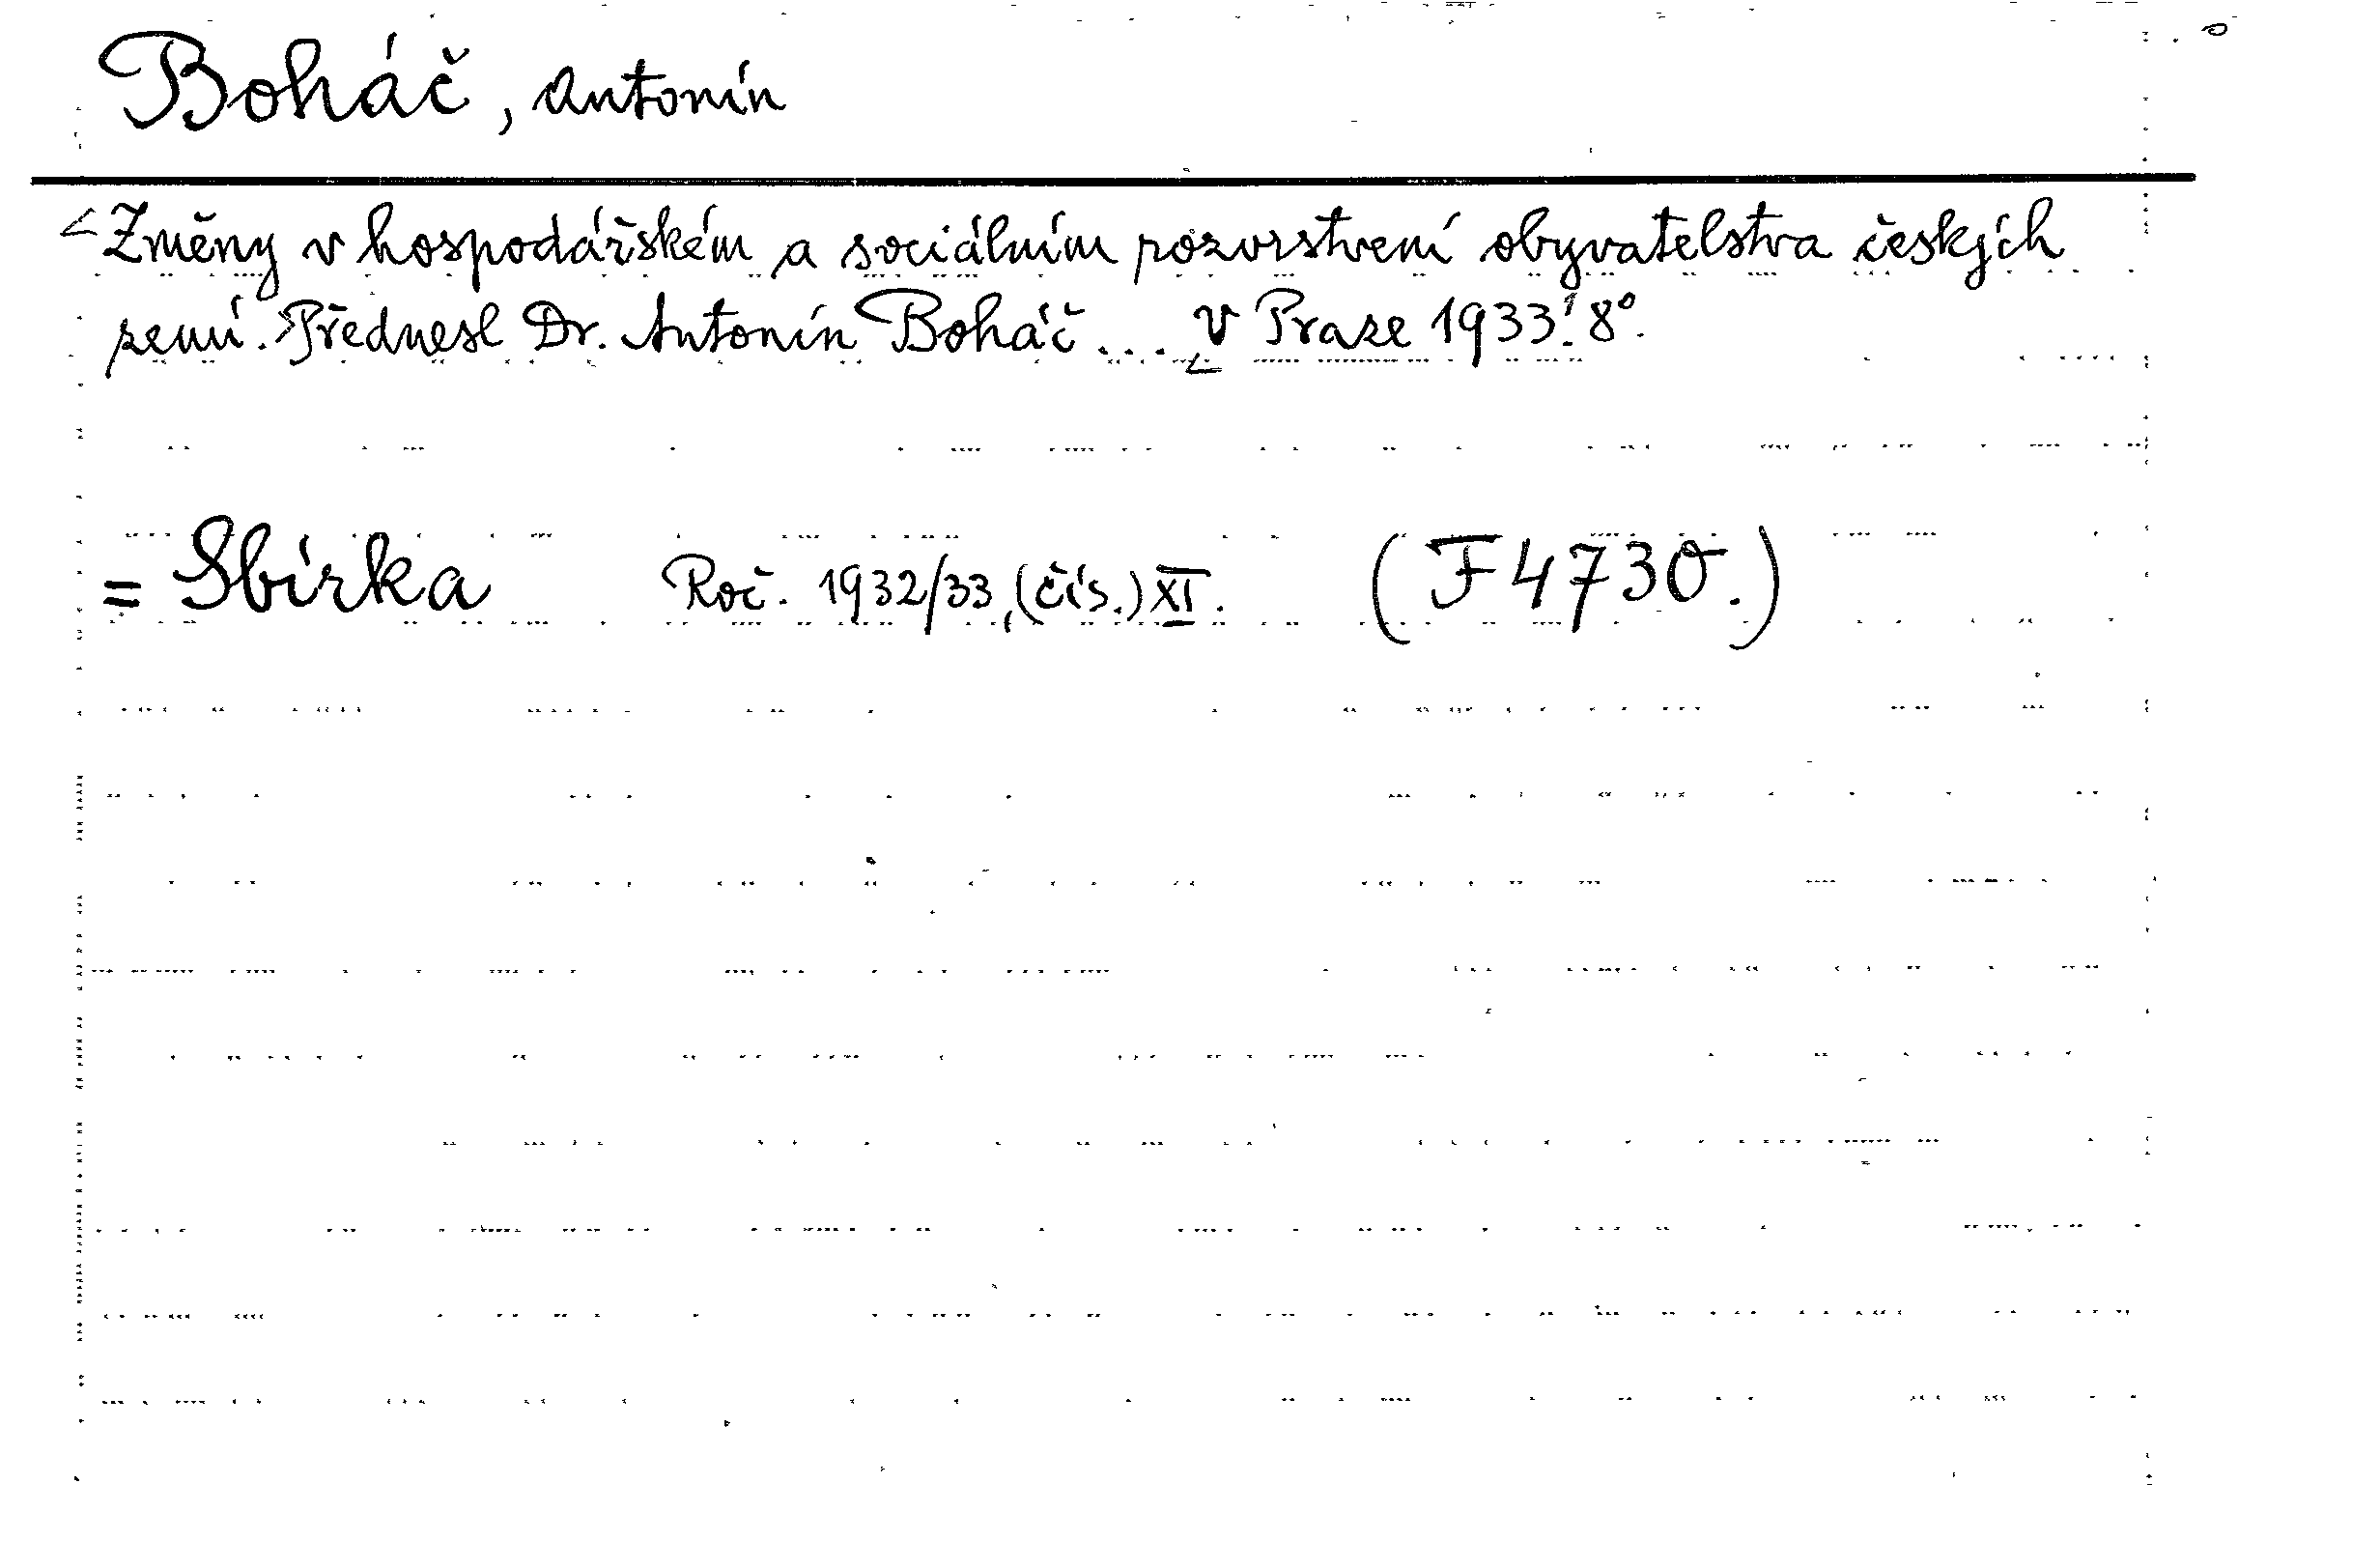 Boháč, Antonín
Změny v hospodářském a sociálním rozvrstvení obyvatelstva českých
zemí. Přednesl Dr. Antonín Boháč ... V Praze 1933. 8°.
= Sbírka Roč. 1932/33, (čís.) XI. (F 4730.)